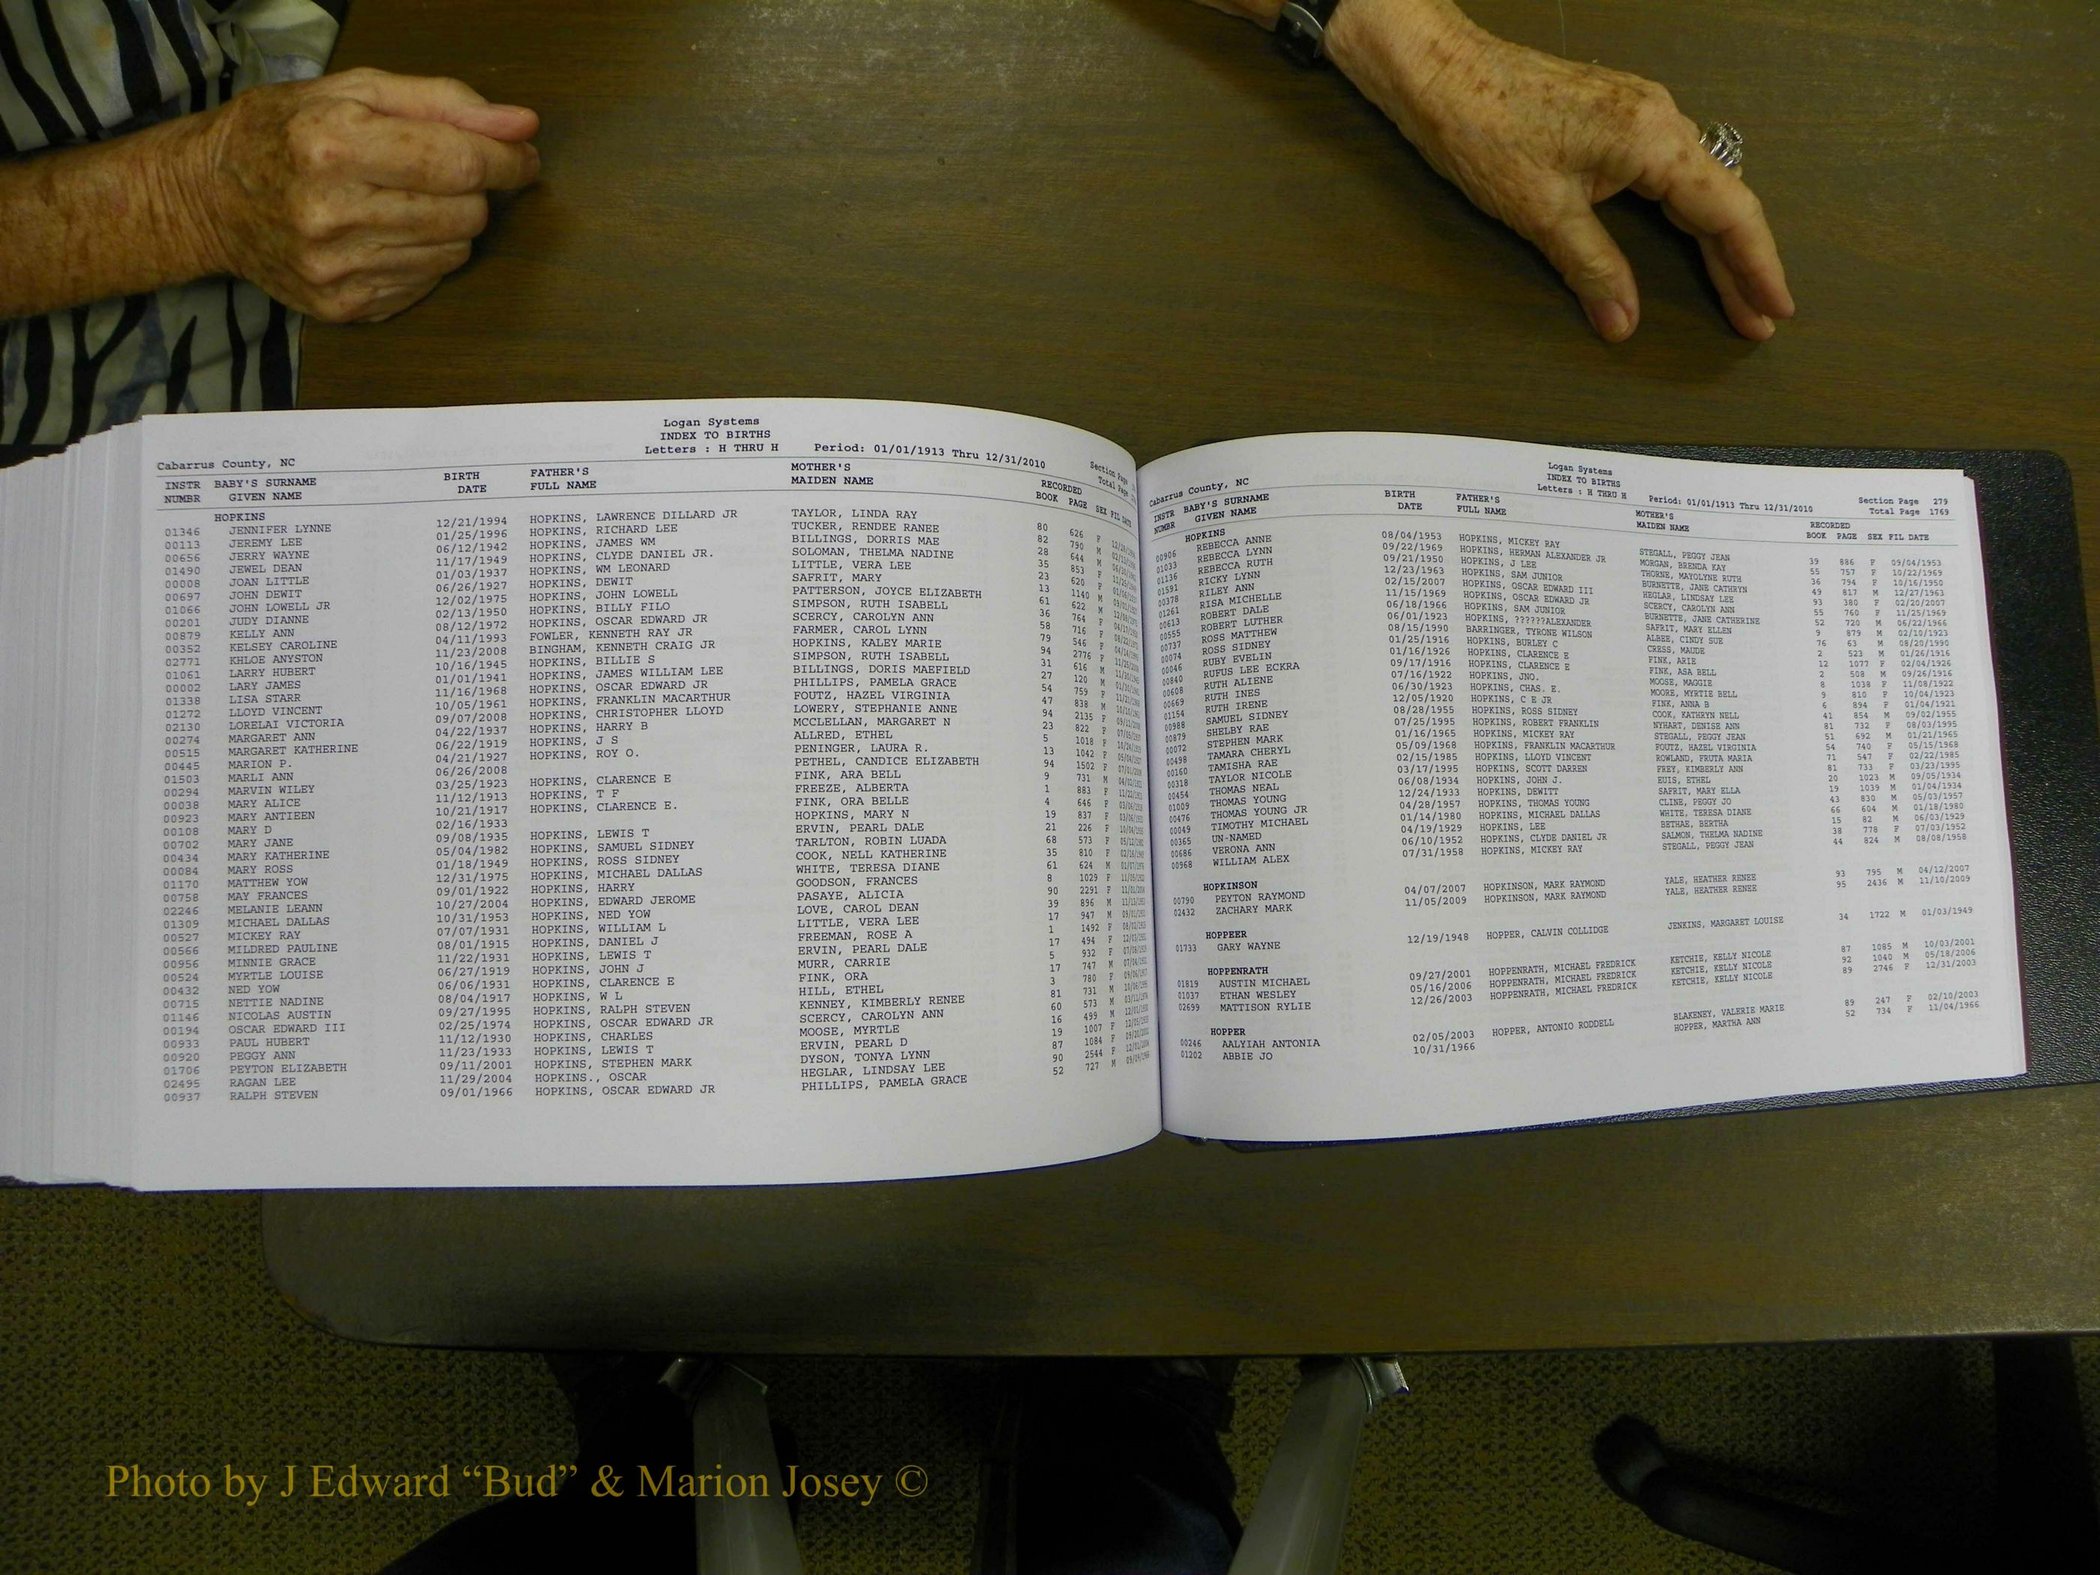 Logan Systems
INDEX TO BIRTHS
Letters : H THRU H Period: 01/01/1913 Thru 12/31/2010
Cabarrus County, NC Section Page
Total Page
INSTR BABY'S SURNAME BIRTH FATHER'S MOTHER'S RECORDED
NUMBR GIVEN NAME DATE FULL NAME MAIDEN NAME BOOK PAGE SEX FIL DATE
HOPKINS
01346 JENNIFER LYNNE 12/21/1994 HOPKINS, LAWRENCE DILLARD JR TAYLOR, LINDA RAY 80 626 F
00113 JEREMY LEE 01/25/1996 HOPKINS, RICHARD LEE TUCKER, RENDEE RANEE 82 790 M
00656 JERRY WAYNE 06/12/1942 HOPKINS, JAMES WM BILLINGS, DORRIS MAE 28 644 M
01490 JEWEL DEAN 11/17/1949 HOPKINS, CLYDE DANIEL JR. SOLOMAN, THELMA NADINE 35 853 F
00008 JOAN LITTLE 01/03/1937 HOPKINS, WM LEONARD LITTLE, VERA LEE 23 620 F
00697 JOHN DEWIT 06/26/1927 HOPKINS, DEWIT SAFRIT, MARY 13 1140 M
01066 JOHN LOWELL JR 12/02/1975 HOPKINS, JOHN LOWELL PATTERSON, JOYCE ELIZABETH 61 622 M
00201 JUDY DIANNE 02/13/1950 HOPKINS, BILLY FILO SIMPSON, RUTH ISABELL 36 764 F
00879 KELLY ANN 08/12/1972 HOPKINS, OSCAR EDWARD JR SCERCY, CAROLYN ANN 58 716 F
00352 KELSEY CAROLINE 04/11/1993 FOWLER, KENNETH RAY JR FARMER, CAROL LYNN 79 546 F
02771 KHLOE ANYSTON 11/23/2008 BINGHAM, KENNETH CRAIG JR HOPKINS, KALEY MARIE 94 2776 F
01061 LARRY HUBERT 10/16/1945 HOPKINS, BILLIE S SIMPSON, RUTH ISABELL 31 616 M
00002 LARY JAMES 01/01/1941 HOPKINS, JAMES WILLIAM LEE BILLINGS, DORIS MAEFIELD 27 120 M
01338 LISA STARR 11/16/1968 HOPKINS, OSCAR EDWARD JR PHILLIPS, PAMELA GRACE 54 759 F
01272 LLOYD VINCENT 10/05/1961 HOPKINS, FRANKLIN MACARTHUR FOUTZ, HAZEL VIRGINIA 47 838 M
02130 LORELAI VICTORIA 09/07/2008 HOPKINS, CHRISTOPHER LLOYD LOWERY, STEPHANIE ANNE 94 2135 F
00274 MARGARET ANN 04/22/1937 HOPKINS, HARRY B MCCLELLAN, MARGARET N 23 822 F
00515 MARGARET KATHERINE 06/22/1919 HOPKINS, J S ALLRED, ETHEL 5 1018 F
00445 MARION P. 04/21/1927 HOPKINS, ROY O. PENINGER, LAURA R. 13 1042 F
01503 MARLI ANN 06/26/2008 PETHEL, CANDICE ELIZABETH 94 1502 F
00294 MARVIN WILEY 03/25/1923 HOPKINS, CLARENCE E FINK, ARA BELL 9 731 M
00038 MARY ALICE 11/12/1913 HOPKINS, T F FREEZE, ALBERTA 1 883 F
00923 MARY ANTIEEN 10/21/1917 HOPKINS, CLARENCE E. FINK, ORA BELLE 4 646 F
00108 MARY D 02/16/1933 HOPKINS, MARY N 19 837 F
00702 MARY JANE 09/08/1935 HOPKINS, LEWIS T ERVIN, PEARL DALE 21 226 F
00434 MARY KATHERINE 05/04/1982 HOPKINS, SAMUEL SIDNEY TARLTON, ROBIN LUADA 68 573 F
00084 MARY ROSS 01/18/1949 HOPKINS, ROSS SIDNEY COOK, NELL KATHERINE 35 810 F
01170 MATTHEW YOW 12/31/1975 HOPKINS, MICHAEL DALLAS WHITE, TERESA DIANE 61 624 M
00758 MAY FRANCES 09/01/1922 HOPKINS, HARRY GOODSON, FRANCES 8 1029 F
02246 MELANIE LEANN 10/27/2004 HOPKINS, EDWARD JEROME PASAYE, ALICIA 90 2291 F
01309 MICHAEL DALLAS 10/31/1953 HOPKINS, NED YOW LOVE, CAROL DEAN 39 896 M
00527 MICKEY RAY 07/07/1931 HOPKINS, WILLIAM L LITTLE, VERA LEE 17 947 M
00566 MILDRED PAULINE 08/01/1915 HOPKINS, DANIEL J FREEMAN, ROSE A 1 1492 F
00956 MINNIE GRACE 11/22/1931 HOPKINS, LEWIS T ERVIN, PEARL DALE 17 494 F
00524 MYRTLE LOUISE 06/27/1919 HOPKINS, JOHN J MURR, CARRIE 5 932 F
00432 NED YOW 06/06/1931 HOPKINS, CLARENCE E FINK, ORA 17 747 M
00715 NETTIE NADINE 08/04/1917 HOPKINS, W L HILL, ETHEL 3 780 F
01146 NICOLAS AUSTIN 09/27/1995 HOPKINS, RALPH STEVEN KENNEY, KIMBERLY RENEE 81 731 M
00194 OSCAR EDWARD III 02/25/1974 HOPKINS, OSCAR EDWARD JR SCERCY, CAROLYN ANN 60 573 M
00933 PAUL HUBERT 11/12/1930 HOPKINS, CHARLES MOOSE, MYRTLE 16 499 M
00920 PEGGY ANN 11/23/1933 HOPKINS, LEWIS T ERVIN, PEARL D 19 1007 F
01706 PEYTON ELIZABETH 09/11/2001 HOPKINS, STEPHEN MARK DYSON, TONYA LYNN 87 1084 F
02495 RAGAN LEE 11/29/2004 HOPKINS., OSCAR HEGLAR, LINDSAY LEE 90 2544 F
00937 RALPH STEVEN 09/01/1966 HOPKINS, OSCAR EDWARD JR PHILLIPS, PAMELA GRACE 52 727 M
Logan Systems
INDEX TO BIRTHS
Letters : H THRU H Period: 01/01/1913 Thru 12/31/2010
Cabarrus County, NC Section Page 279
Total Page 1769
INSTR BABY'S SURNAME BIRTH FATHER'S MOTHER'S RECORDED
NUMBR GIVEN NAME DATE FULL NAME MAIDEN NAME BOOK PAGE SEX FIL DATE
HOPKINS
00906 REBECCA ANNE 08/04/1953 HOPKINS, MICKEY RAY STEGALL, PEGGY JEAN 39 886 F 09/04/1953
01033 REBECCA LYNN 09/22/1969 HOPKINS, HERMAN ALEXANDER JR MORGAN, BRENDA KAY 55 757 F 10/22/1969
01136 REBECCA RUTH 09/21/1950 HOPKINS, J LEE THORNE, MAYOLYNE RUTH 36 794 F 10/16/1950
01591 RICKY LYNN 12/23/1963 HOPKINS, SAM JUNIOR BURNETTE, JANE CATHRYN 49 817 M 12/27/1963
00378 RILEY ANN 02/15/2007 HOPKINS, OSCAR EDWARD III HEGLAR, LINDSAY LEE 93 380 F 02/20/2007
01261 RISA MICHELLE 11/15/1969 HOPKINS, OSCAR EDWARD JR SCERCY, CAROLYN ANN 55 760 F 11/25/1969
00613 ROBERT DALE 06/18/1966 HOPKINS, SAM JUNIOR BURNETTE, JANE CATHERINE 52 720 M 06/22/1966
00555 ROBERT LUTHER 06/01/1923 HOPKINS, ??????ALEXANDER SAFRIT, MARY ELLEN 9 879 M 02/10/1923
00737 ROSS MATTHEW 08/15/1990 BARRINGER, TYRONE WILSON ALBEE, CINDY SUE 76 63 M 08/20/1990
00074 ROSS SIDNEY 01/25/1916 HOPKINS, BURLEY C CRESS, MAUDE 2 523 M 01/26/1916
00046 RUBY EVELIN 01/16/1926 HOPKINS, CLARENCE E FINK, ARIE 12 1077 F 02/04/1926
00840 RUFUS LEE ECKRA 09/17/1916 HOPKINS, CLARENCE E FINK, ASA BELL 2 508 M 09/26/1916
00608 RUTH ALIENE 07/16/1922 HOPKINS, JNO. MOOSE, MAGGIE 8 1038 F 11/08/1922
00669 RUTH INES 06/30/1923 HOPKINS, CHAS. E. MOORE, MYRTIE BELL 9 810 F 10/04/1923
01154 RUTH IRENE 12/05/1920 HOPKINS, C E JR FINK, ANNA B 6 894 F 01/04/1921
00988 SAMUEL SIDNEY 08/28/1955 HOPKINS, ROSS SIDNEY COOK, KATHRYN NELL 41 854 M 09/02/1955
00879 SHELBY RAE 07/25/1995 HOPKINS, ROBERT FRANKLIN NYHART, DENISE ANN 81 732 F 08/03/1995
00072 STEPHEN MARK 01/16/1965 HOPKINS, MICKEY RAY STEGALL, PEGGY JEAN 51 692 M 01/21/1965
00498 TAMARA CHERYL 05/09/1968 HOPKINS, FRANKLIN MACARTHUR FOUTZ, HAZEL VIRGINIA 54 740 F 05/15/1968
00160 TAMISHA RAE 02/15/1985 HOPKINS, LLOYD VINCENT ROWLAND, FRUTA MARIA 71 547 F 02/22/1985
00318 TAYLOR NICOLE 03/17/1995 HOPKINS, SCOTT DARREN FREY, KIMBERLY ANN 81 733 F 03/23/1995
00454 THOMAS NEAL 06/08/1934 HOPKINS, JOHN J. EUIS, ETHEL 20 1023 M 09/05/1934
01009 THOMAS YOUNG 12/24/1933 HOPKINS, DEWITT SAFRIT, MARY ELLA 19 1039 M 01/04/1934
00476 THOMAS YOUNG JR 04/28/1957 HOPKINS, THOMAS YOUNG CLINE, PEGGY JO 43 830 M 05/03/1957
00049 TIMOTHY MICHAEL 01/14/1980 HOPKINS, MICHAEL DALLAS WHITE, TERESA DIANE 66 604 M 01/18/1980
00365 UN-NAMED 04/19/1929 HOPKINS, LEE BETHAE, BERTHA 15 82 M 06/03/1929
00686 VERONA ANN 06/10/1952 HOPKINS, CLYDE DANIEL JR SALMON, THELMA NADINE 38 778 F 07/03/1952
00968 WILLIAM ALEX 07/31/1958 HOPKINS, MICKEY RAY STEGALL, PEGGY JEAN 44 824 M 08/08/1958
HOPKINSON
00790 PEYTON RAYMOND 04/07/2007 HOPKINSON, MARK RAYMOND YALE, HEATHER RENEE 93 795 M 04/12/2007
02432 ZACHARY MARK 11/05/2009 HOPKINSON, MARK RAYMOND YALE, HEATHER RENEE 95 2436 M 11/10/2009
HOPPEER
01733 GARY WAYNE 12/19/1948 HOPPER, CALVIN COLLIDGE JENKINS, MARGARET LOUISE 34 1722 M 01/03/1949
HOPPENRATH
01819 AUSTIN MICHAEL 09/27/2001 HOPPENRATH, MICHAEL FREDRICK KETCHIE, KELLY NICOLE 87 1085 M 10/03/2001
01037 ETHAN WESLEY 05/16/2006 HOPPENRATH, MICHAEL FREDRICK KETCHIE, KELLY NICOLE 92 1040 M 05/18/2006
02699 MATTISON RYLIE 12/26/2003 HOPPENRATH, MICHAEL FREDRICK KETCHIE, KELLY NICOLE 89 2746 F 12/31/2003
HOPPER
00246 AALYIAH ANTONIA 02/05/2003 HOPPER, ANTONIO RODDELL BLAKENEY, VALERIE MARIE 89 247 F 02/10/2003
01202 ABBIE JO 10/31/1966 HOPPER, MARTHA ANN 52 734 F 11/04/1966
Photo by J Edward “Bud” & Marion Josey ©